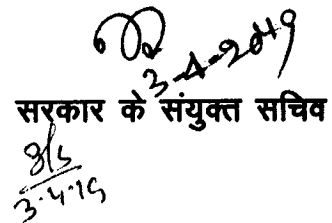 3-4-2019
सरकार के संयुक्त सचिव
3.4.19